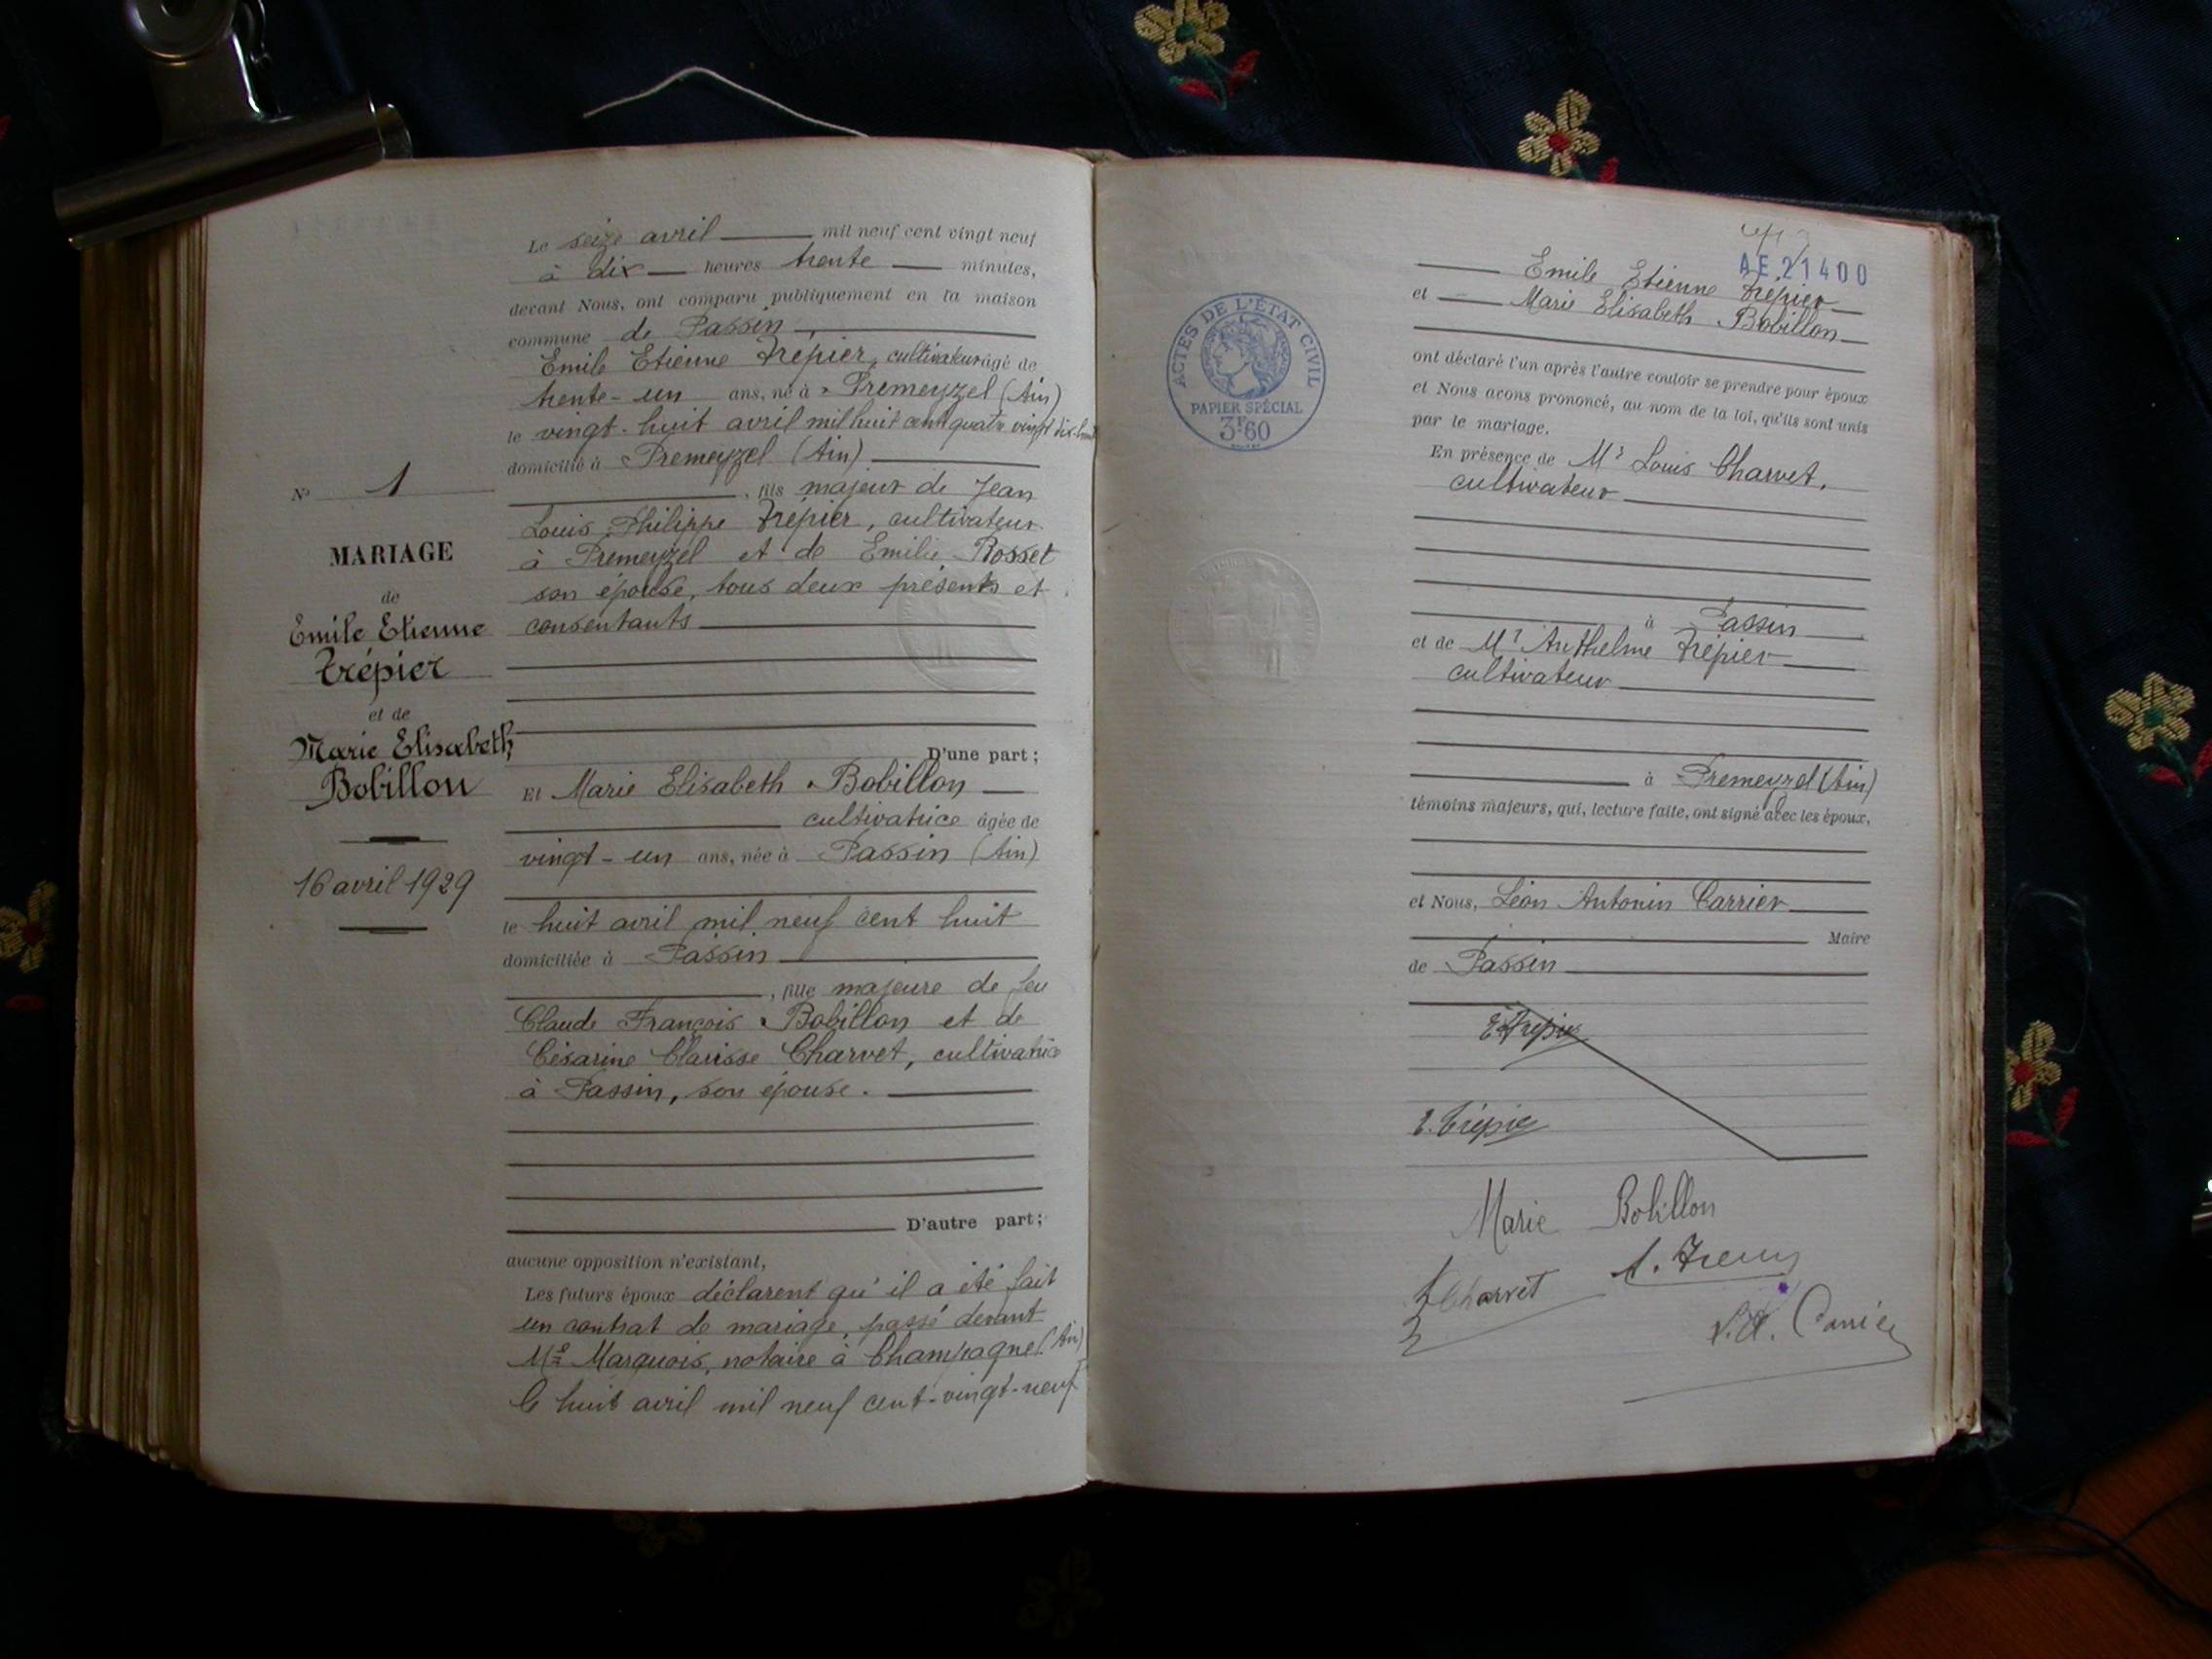 Le seize avril mil neuf cent vingt neuf
à dix heures trente minutes,
devant Nous, ont comparu publiquement en la maison
commune de Passin
Emile Etienne Trépier, cultivateur âgé de
trente-un ans, né à Premeyzel (Ain)
le vingt-huit avril mil huit cent quatre vingt dix-huit
domicilié à Premeyzel (Ain)
, fils majeur de Jean
Louis Philippe Trépier, cultivateur
à Premeyzel et de Emilie Rosset
son épouse, tous deux présents et
consentants
D'une part;
Et Marie Elisabeth Bobillon
cultivatrice âgée de
vingt-un ans, née à Passin (Ain)
le huit avril mil neuf cent huit
domiciliée à Passin
, fille majeure de feu
Claude François Bobillon et de
Césarine Clarisse Charvet, cultivatrice
à Passin, son épouse.
D'autre part;
aucune opposition n'existant,
Les futurs époux déclarent qu'il a été fait
un contrat de mariage, passé devant
Me Marquois, notaire à Champagne (Ain)
le huit avril mil neuf cent-vingt-neuf
No 1
MARIAGE
de
Emile Etienne
Trépier
et de
Marie Elisabeth
Bobillon
16 avril 1929
AE.21400
Emile Etienne Trépier
et Marie Elisabeth Bobillon
ont déclaré l'un après l'autre vouloir se prendre pour époux
et Nous avons prononcé, au nom de la loi, qu'ils sont unis
par le mariage.
En présence de Mr Louis Charvet,
cultivateur
à Passin
et de Mr Anthelme Trépier
cultivateur
à Premeyzel (Ain)
témoins majeurs, qui, lecture faite, ont signé avec les époux,
et Nous, Léon Antonin Carrier
Maire
de Passin
E. Trépier
E. Trépier
Marie Bobillon
Charvet
ACTES DE L'ÉTAT CIVIL
PAPIER SPÉCIAL
3F.60